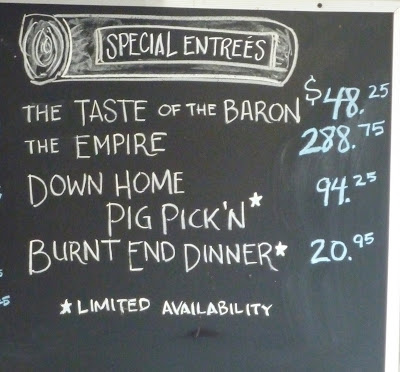 SPECIAL ENTREÉS
THE TASTE OF THE BARON $48.25
THE EMPIRE 288.75
DOWN HOME
PIG PICK'N* 94.25
BURNT END DINNER* 20.95
*LIMITED AVAILABILITY